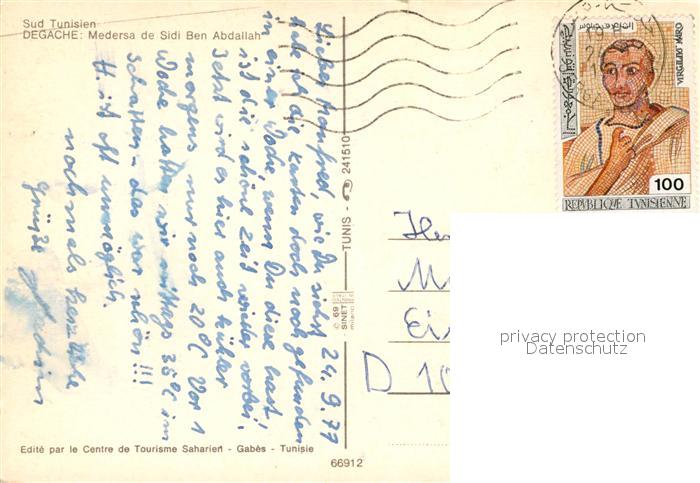 Sud Tunisien
DEGACHE: Medersa de Sidi Ben Abdallah
24.9.77
Lieber Manfred, wie Du siehst
habe ich die Karten doch noch gefunden
in einer Woche, wenn Du diese hast
ist die schöne Zeit wieder vorbei.
Jetzt wird es hier auch kühler
morgens nur noch 20°C. Vor 1
Woche hatten wir mittags 36°C im
Schatten - das war schön!!!
H. ist oft unmöglich.
nochmals herzliche
Grüße
TUNIS - 241510
© 69 SINET
milano
VIRGILIO MÁRO
100
REPVBLIQUE TVNISIENNE
D 10
privacy protection
Datenschutz
Edité par le Centre de Tourisme Saharien - Gabès - Tunisie
66912